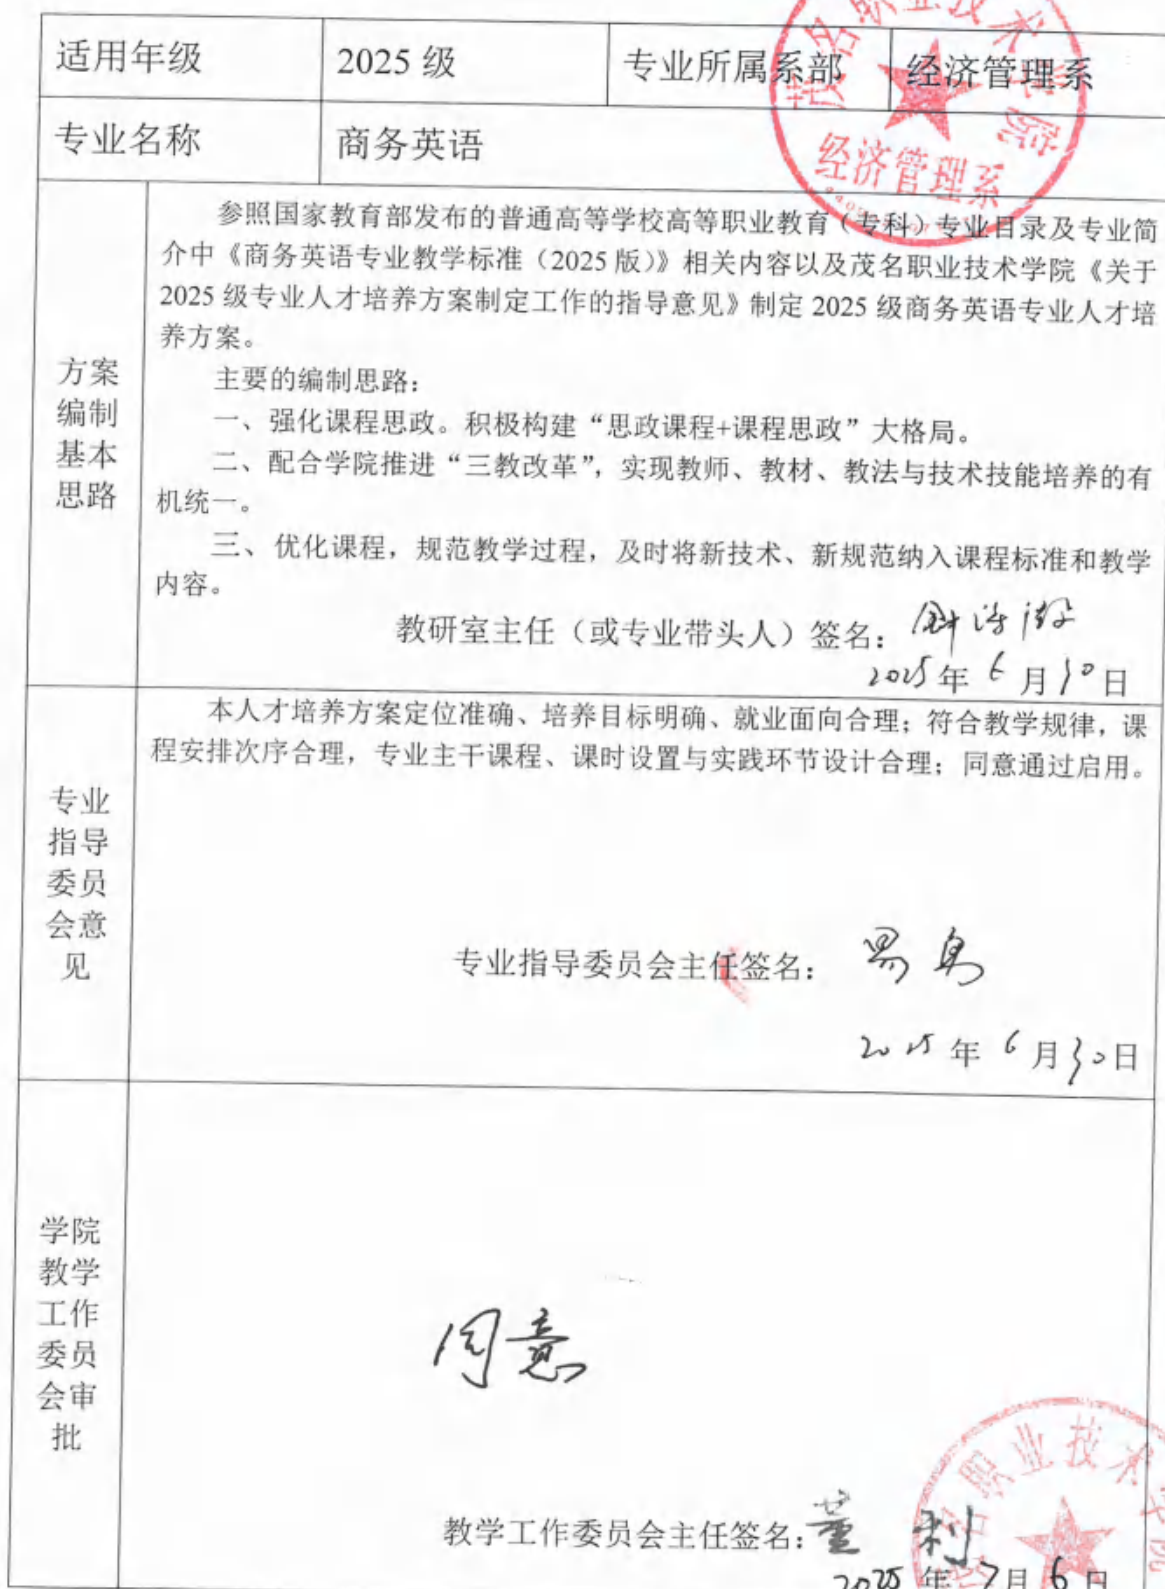 适用年级 2025 级 专业所属系部 经济管理系
专业名称 商务英语
茂名职业技术学院
经济管理系
方案编制基本思路
参照国家教育部发布的普通高等学校高等职业教育（专科）专业目录及专业简
介中《商务英语专业教学标准（2025 版）》相关内容以及茂名职业技术学院《关于
2025 级专业人才培养方案制定工作的指导意见》制定 2025 级商务英语专业人才培
养方案。
主要的编制思路：
一、强化课程思政。积极构建“思政课程+课程思政”大格局。
二、配合学院推进“三教改革”，实现教师、教材、教法与技术技能培养的有
机统一。
三、优化课程，规范教学过程，及时将新技术、新规范纳入课程标准和教学
内容。
教研室主任（或专业带头人）签名：
2025 年 6 月 30 日
专业指导委员会意见
本人才培养方案定位准确、培养目标明确、就业面向合理；符合教学规律，课
程安排次序合理，专业主干课程、课时设置与实践环节设计合理；同意通过启用。
专业指导委员会主任签名：
2025 年 6 月 30 日
学院教学工作委员会审批
同意
教学工作委员会主任签名：
2025 年 7 月 6 日
名职业技术学院